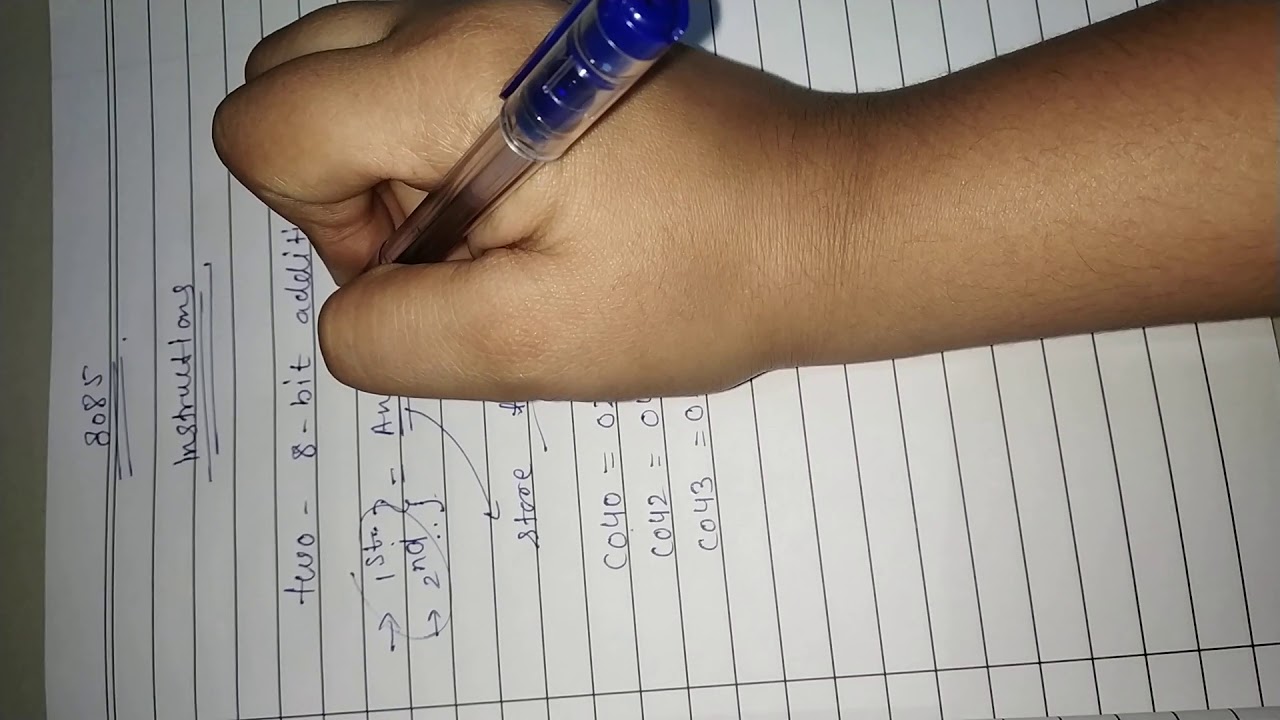 8085.
Instructions.
two - 8-bit additi
→ 1st } - An
→ 2nd }
store
C040 = 0
C042 = 0
C043 = 0